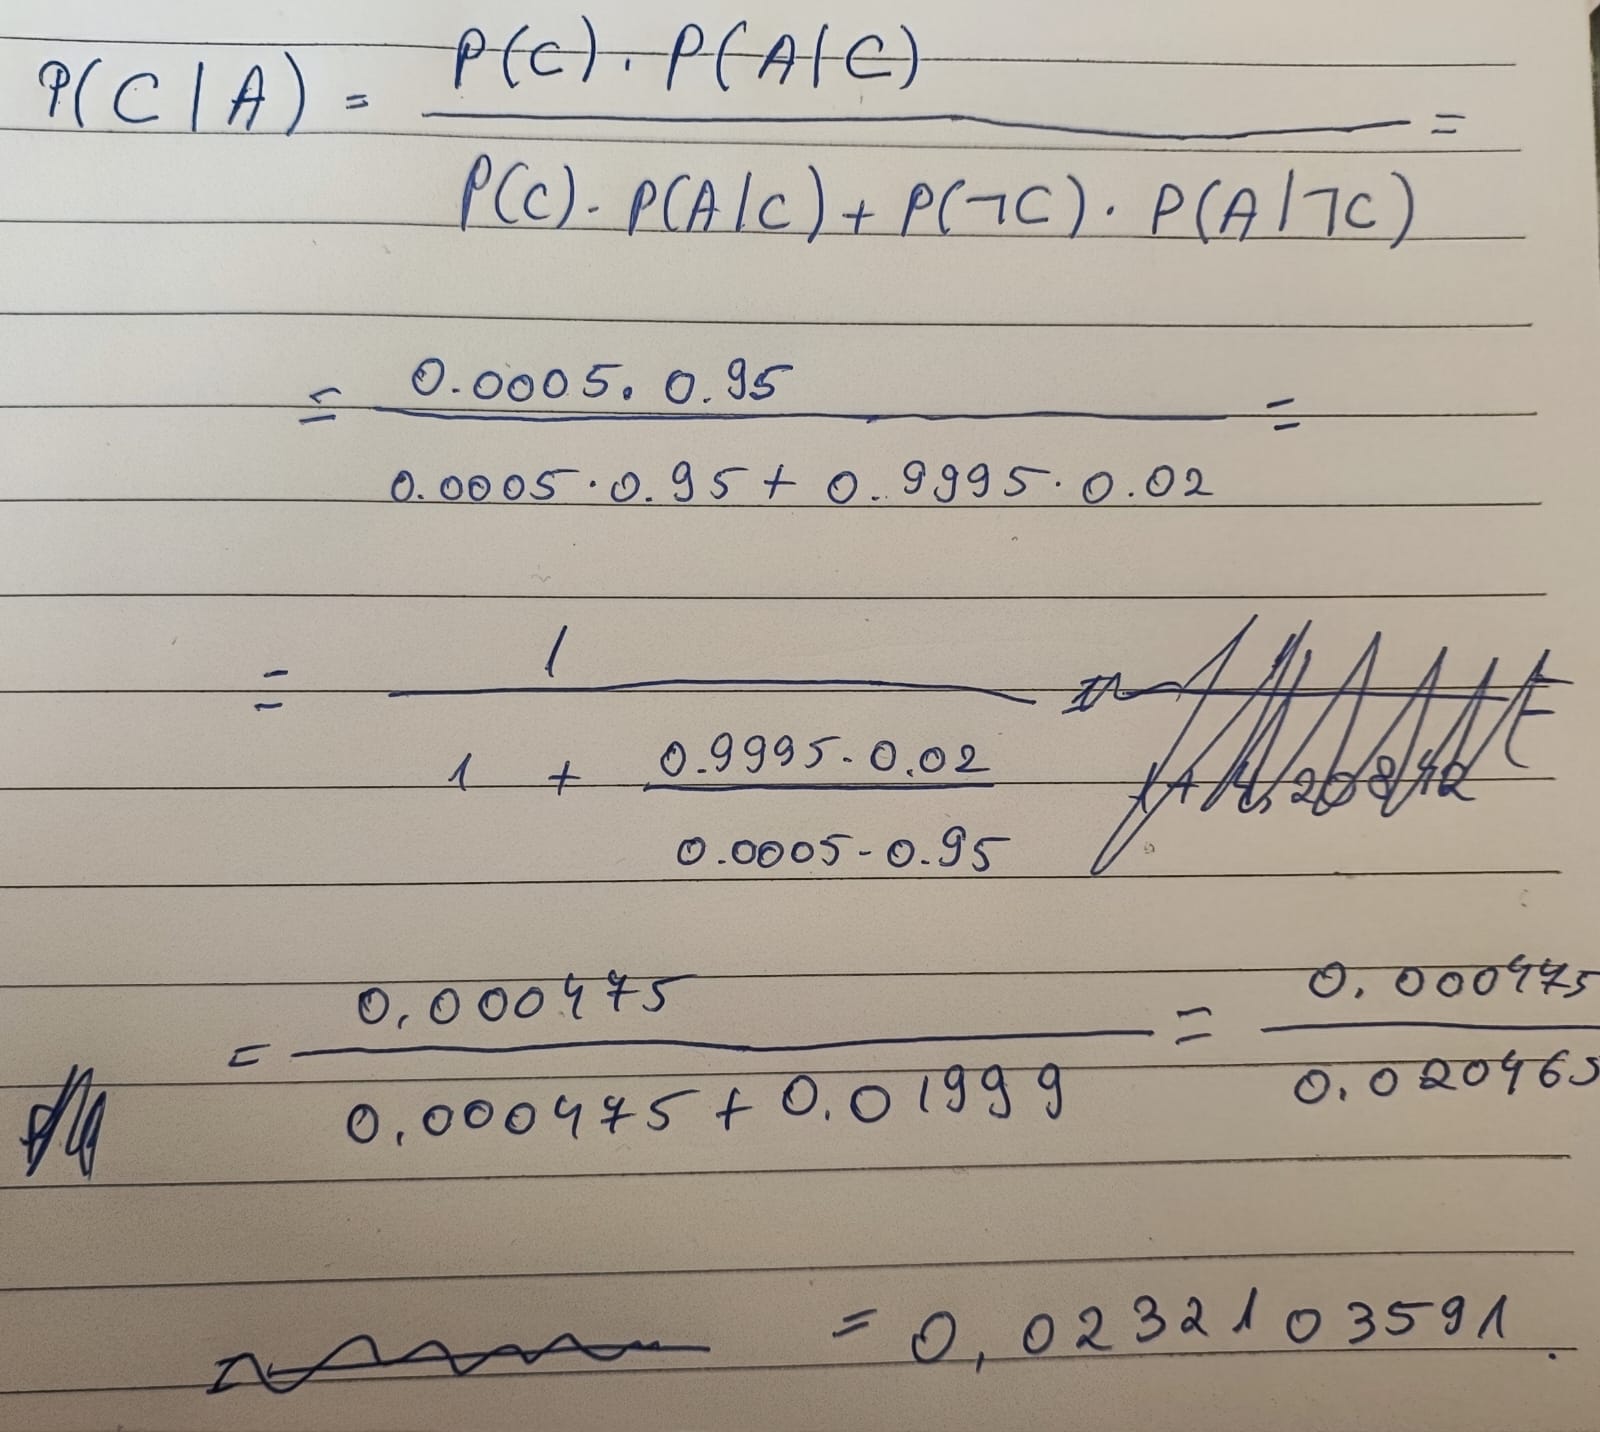 P(C|A) = P(C) . P(A|C) =
P(C) . P(A|C) + P(¬C) . P(A|¬C)
= 0.0005 . 0.95 =
0.0005 . 0.95 + 0.9995 . 0.02
= 1
1 + 0.9995 . 0.02
0.0005 - 0.95
= 0,000475 = 0,000475
0,000475 + 0,01999 0,020465
= 0,0232103591